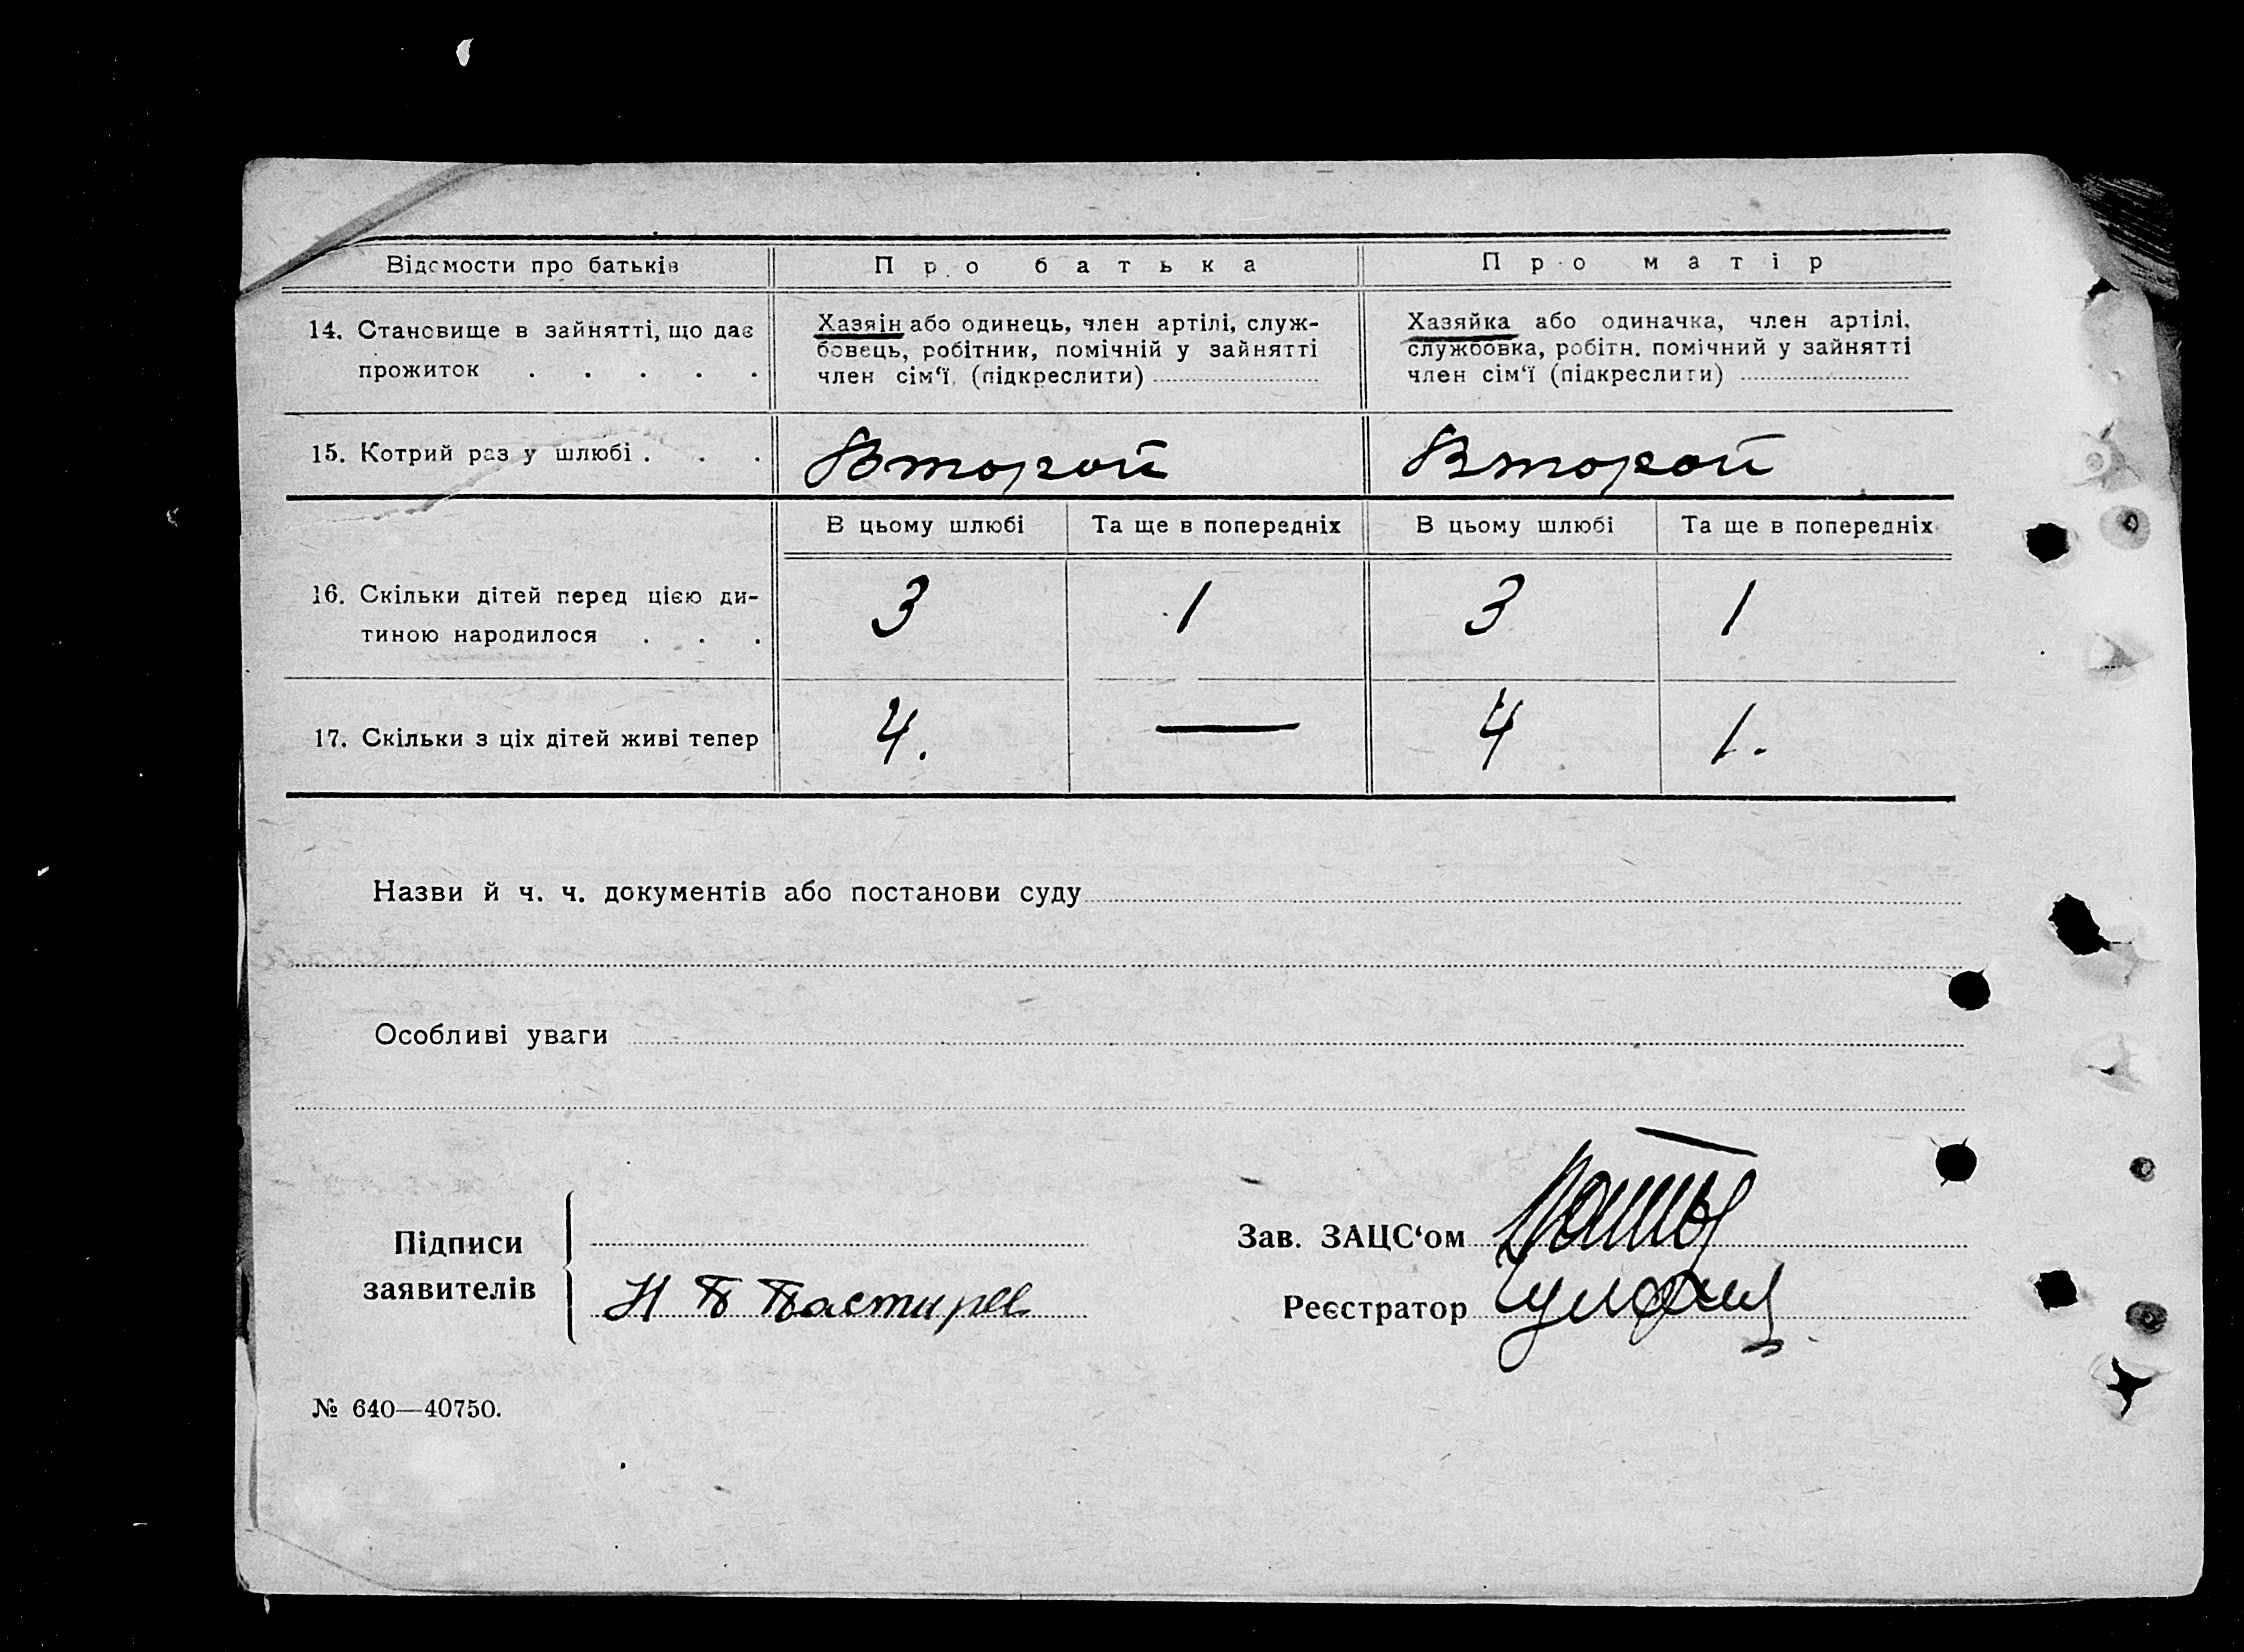 Відомости про батьків
Про батька
Про матір
14. Становище в зайнятті, що дає
прожиток . . . . .
Хазяін або одинець, член артілі, служ-
бовець, робітник, помічній у зайнятті
член сім'ї, (підкреслити)
Хазяйка або одиначка, член артілі,
службовка, робітн. помічний у зайнятті
член сім'ї (підкреслити)
15. Котрий раз у шлюбі . . .
Второй
Второй
В цьому шлюбі
Та ще в попередніх
В цьому шлюбі
Та ще в попередніх
16. Скільки дітей перед цією ди-
тиною народилося . . .
3
1
3
1
17. Скільки з ціх дітей живі тепер
4.
—
4
1.
Назви й ч. ч. документів або постанови суду
Особливі уваги
Підписи
заявителів
Н П
Зав. ЗАЦС'ом
Реєстратор
№ 640—40750.